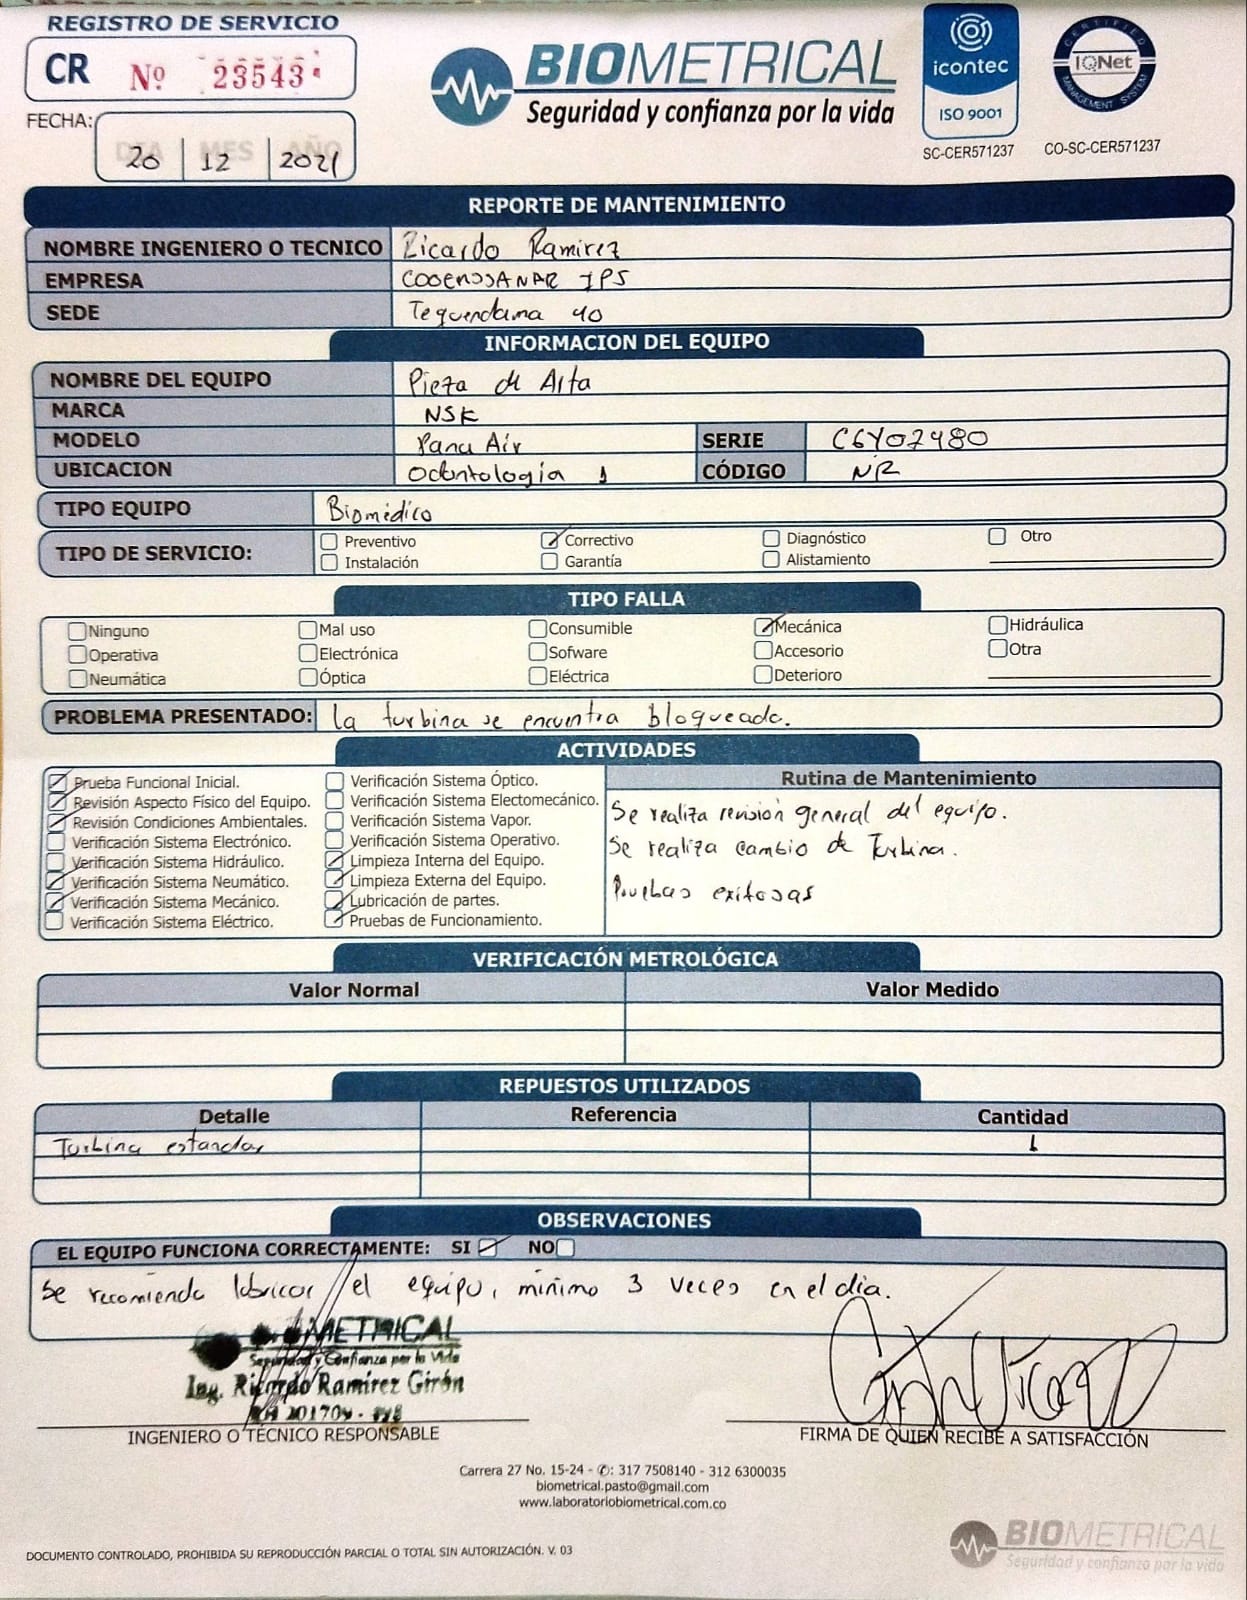 REGISTRO DE SERVICIO
CR Nº 23543
FECHA: DIA MES AÑO
20 12 2021
BIOMETRICAL
Seguridad y confianza por la vida
icontec
ISO 9001
SC-CER571237
CERTIFIED
IQNet
MANAGEMENT SYSTEM
CO-SC-CER571237
REPORTE DE MANTENIMIENTO
NOMBRE INGENIERO O TECNICO Ricardo Ramirez
EMPRESA IPS
SEDE Tequendama 40
INFORMACION DEL EQUIPO
NOMBRE DEL EQUIPO Pieza de Alta
MARCA NSK
MODELO Pana Air SERIE C6Y07480
UBICACION Odontología 1 CÓDIGO NR
TIPO EQUIPO Biomédico
TIPO DE SERVICIO: Preventivo Correctivo Diagnóstico Otro
Instalación Garantía Alistamiento
TIPO FALLA
Ninguno Mal uso Consumible Mecánica Hidráulica
Operativa Electrónica Sofware Accesorio Otra
Neumática Óptica Eléctrica Deterioro
PROBLEMA PRESENTADO: la turbina se encuntra bloqueada.
ACTIVIDADES
Prueba Funcional Inicial.
Revisión Aspecto Físico del Equipo.
Revisión Condiciones Ambientales.
Verificación Sistema Electrónico.
Verificación Sistema Hidráulico.
Verificación Sistema Neumático.
Verificación Sistema Mecánico.
Verificación Sistema Eléctrico.
Verificación Sistema Óptico.
Verificación Sistema Electomecánico.
Verificación Sistema Vapor.
Verificación Sistema Operativo.
Limpieza Interna del Equipo.
Limpieza Externa del Equipo.
Lubricación de partes.
Pruebas de Funcionamiento.
Rutina de Mantenimiento
Se realiza revisión general del equipo.
Se realiza cambio de Turbina.
Pruebas exitosas
VERIFICACIÓN METROLÓGICA
Valor Normal Valor Medido
REPUESTOS UTILIZADOS
Detalle Referencia Cantidad
Turbina estandar 1
OBSERVACIONES
EL EQUIPO FUNCIONA CORRECTAMENTE: SI NO
Se recomienda lubricar el equipo, mínimo 3 veces en el día.
BIOMETRICAL
Seguridad y Confianza por la Vida
Ing. Ricardo Ramirez Girón
INGENIERO O TÉCNICO RESPONSABLE
FIRMA DE QUIEN RECIBE A SATISFACCIÓN
Carrera 27 No. 15-24 - ✆: 317 7508140 - 312 6300035
biometrical.pasto@gmail.com
www.laboratoriobiometrical.com.co
BIOMETRICAL
Seguridad y confianza por la vida
DOCUMENTO CONTROLADO, PROHIBIDA SU REPRODUCCIÓN PARCIAL O TOTAL SIN AUTORIZACIÓN. V. 03